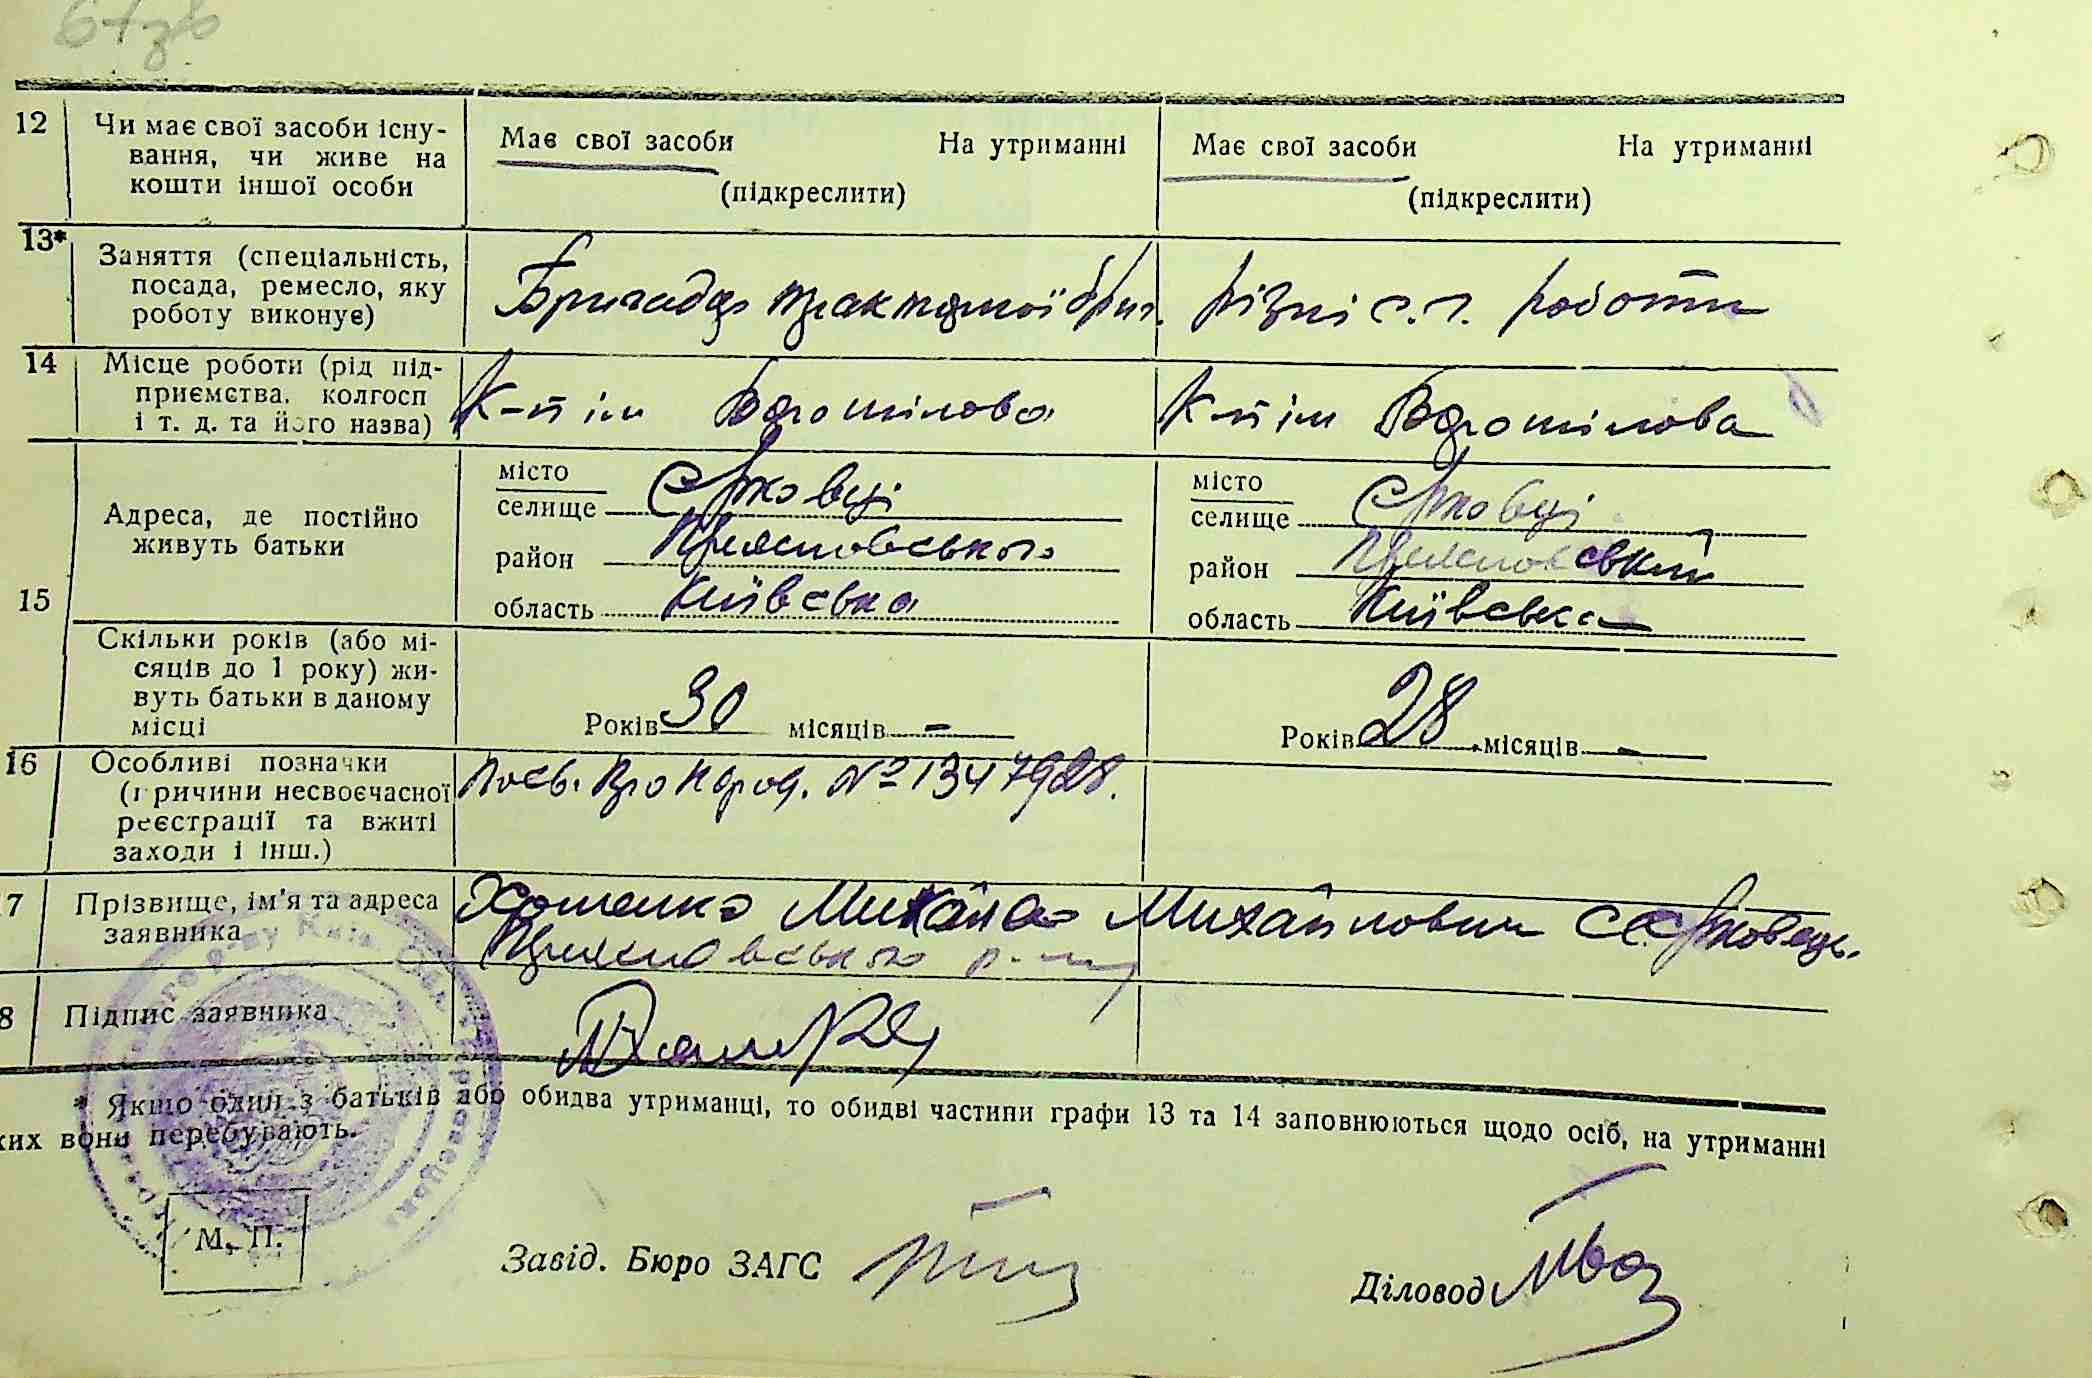 67зв
12 Чи має свої засоби існу-
вання, чи живе на
кошти іншої особи
Має свої засоби На утриманні
(підкреслити)
Має свої засоби На утриманні
(підкреслити)
13* Заняття (спеціальність,
посада, ремесло, яку
роботу виконує)
Бригадир тракторної бриг.
різні с.г. роботи
14 Місце роботи (рід під-
приємства, колгосп
і т. д. та його назва)
К-п ім Ворошилова
К-п ім Ворошилова
15
Адреса, де постійно
живуть батьки
місто
селище Єрковці
район
область Київська
місто
селище Єрковці
район
область Київська
Скільки років (або мі-
сяців до 1 року) жи-
вуть батьки в даному
місці
Років 30 місяців -
Років 28 місяців -
16 Особливі позначки
(причини несвоєчасної
реєстрації та вжиті
заходи і інш.)
Посв. про народ. № 1347928.
7 Прізвище, ім'я та адреса
заявника
Хоменко Михайло Михайлович с Єрковець.
8 Підпис заявника
* Якщо один з батьків або обидва утриманці, то обидві частини графи 13 та 14 заповнюються щодо осіб, на утриманні
ких вони перебувають.
М. П.
Завід. Бюро ЗАГС
Діловод